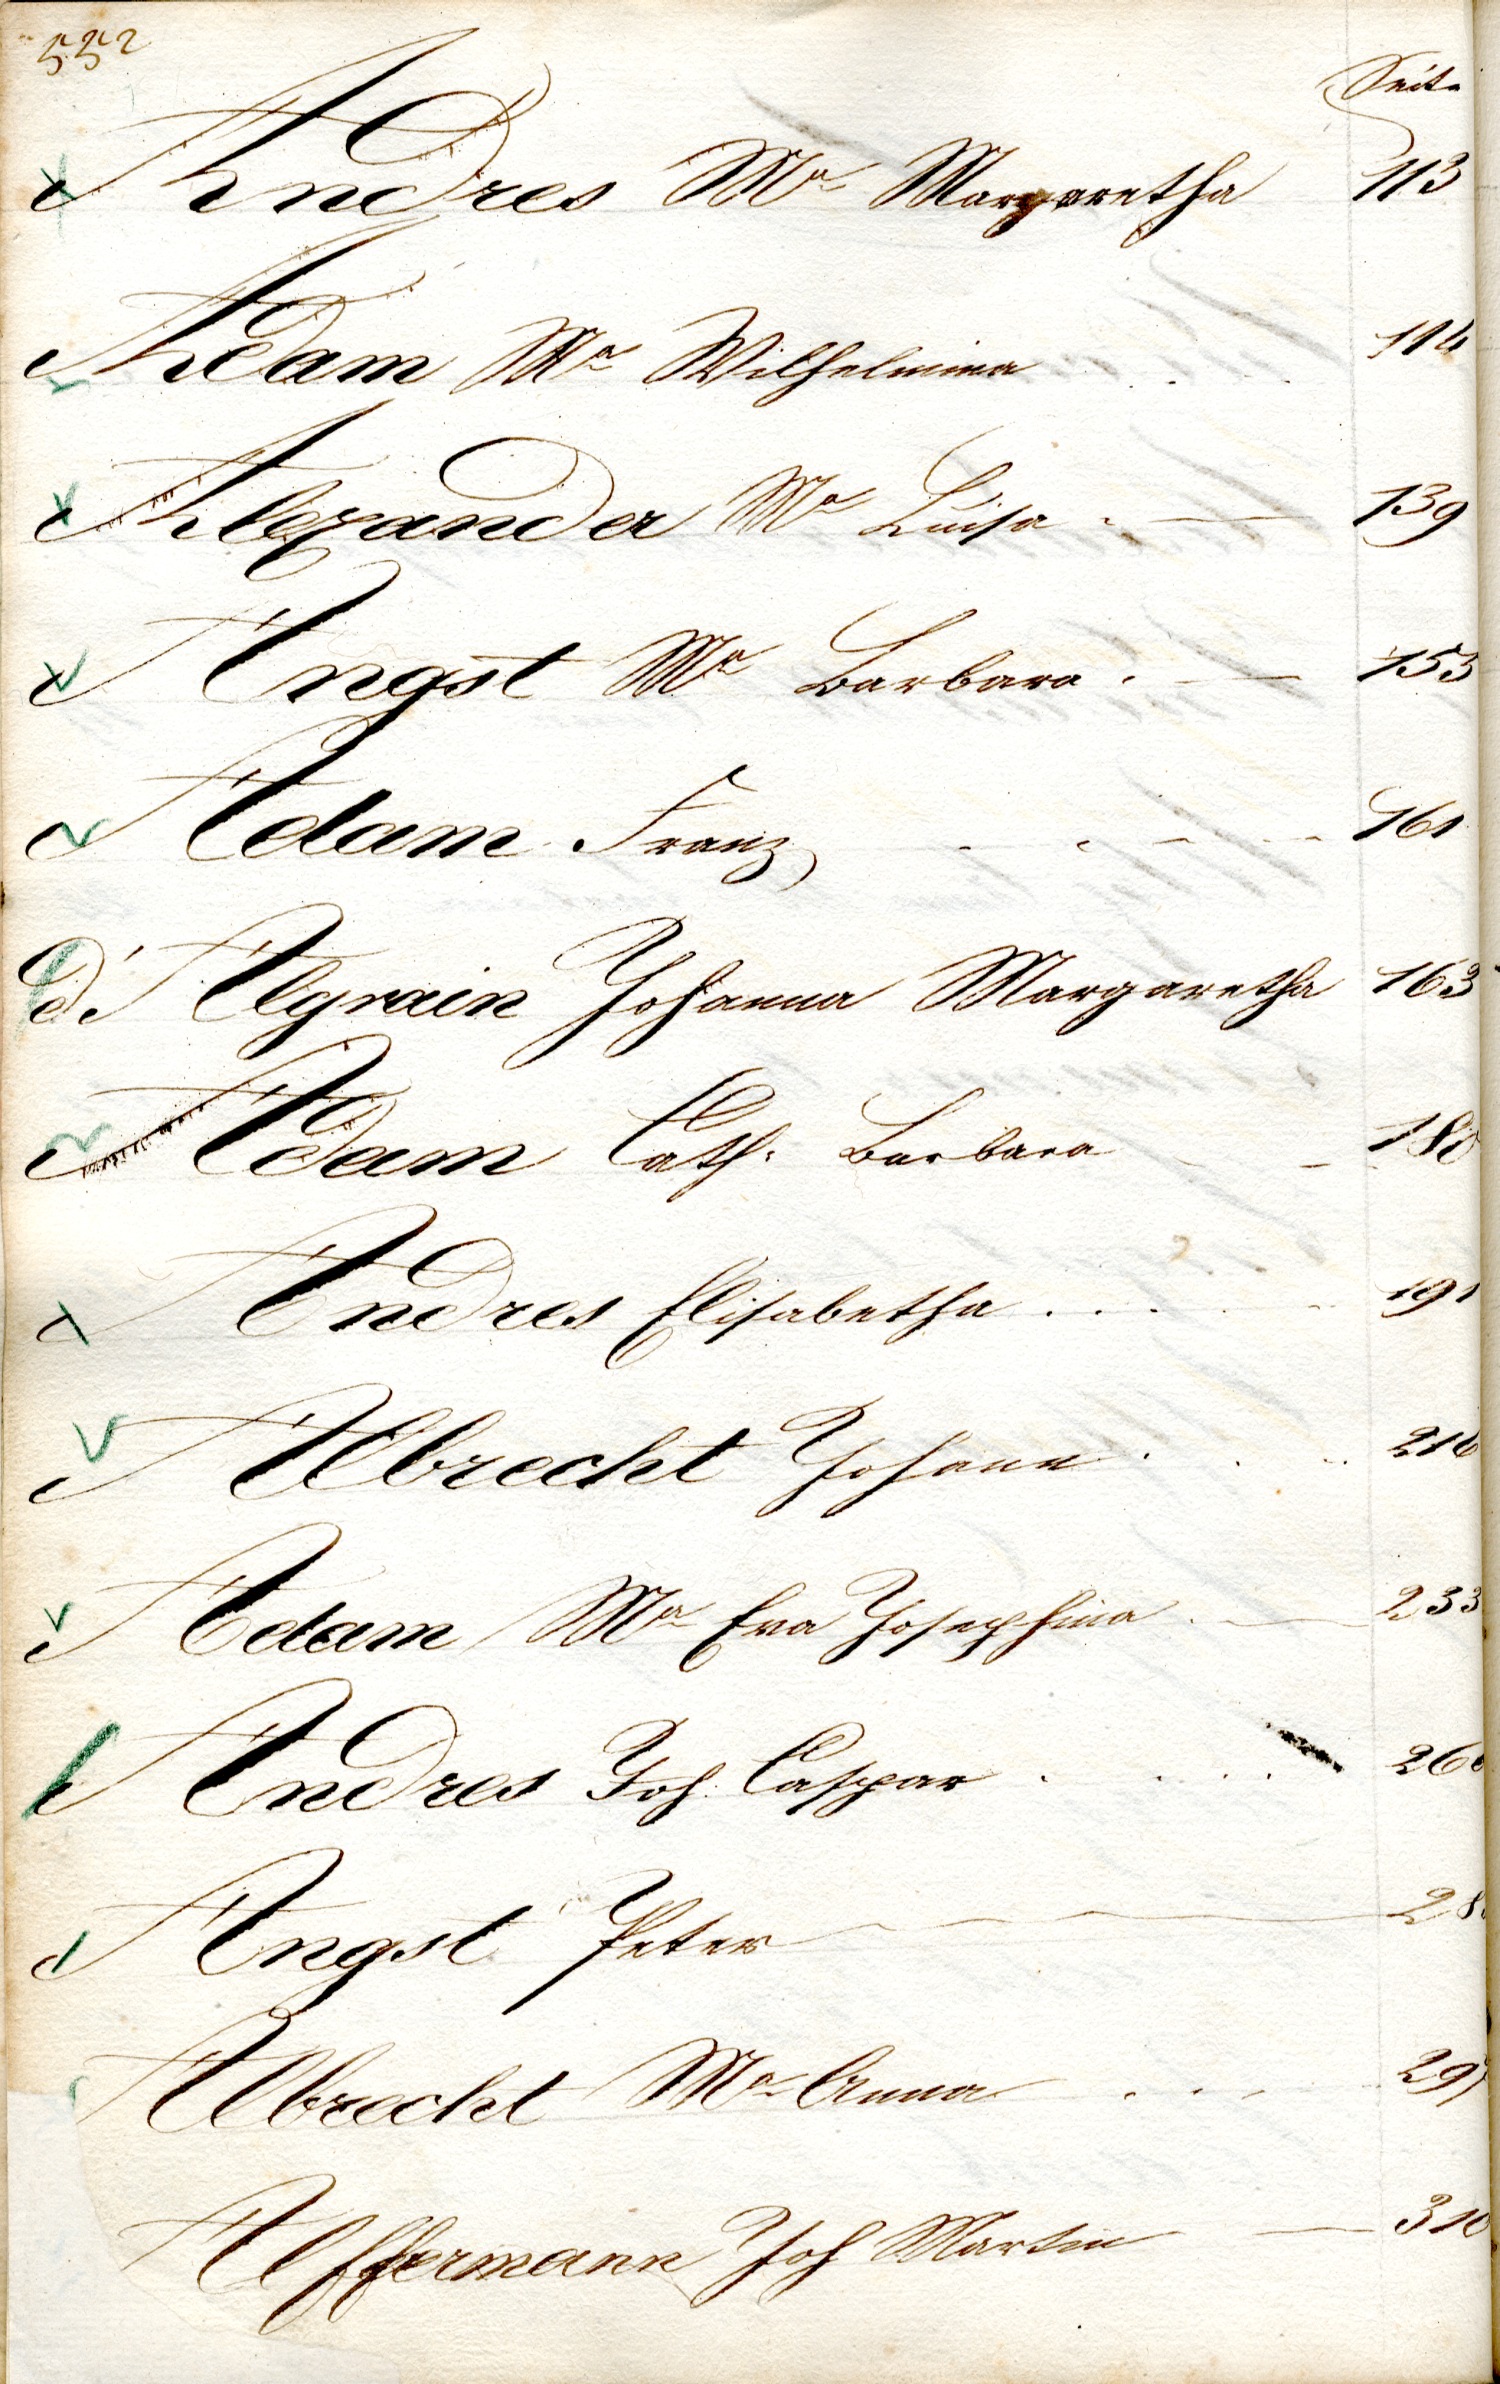 552
Seite
Andres Mª Margaretha 113
Adam Mª Wilhelmina 114
Alexander Mª Luisa 139
Angst Mª Barbara 153
Adam Franz 161
d'Algrain Johanna Margaretha 163
Adam Cath. Barbara 180
Andres Elisabetha 191
Albrecht Johann 216
Adam Mª Eva Josephina 233
Andres Joh. Caspar
Angst Peter
Albrecht Mª Anna 297
Affermann Joh Martin 310